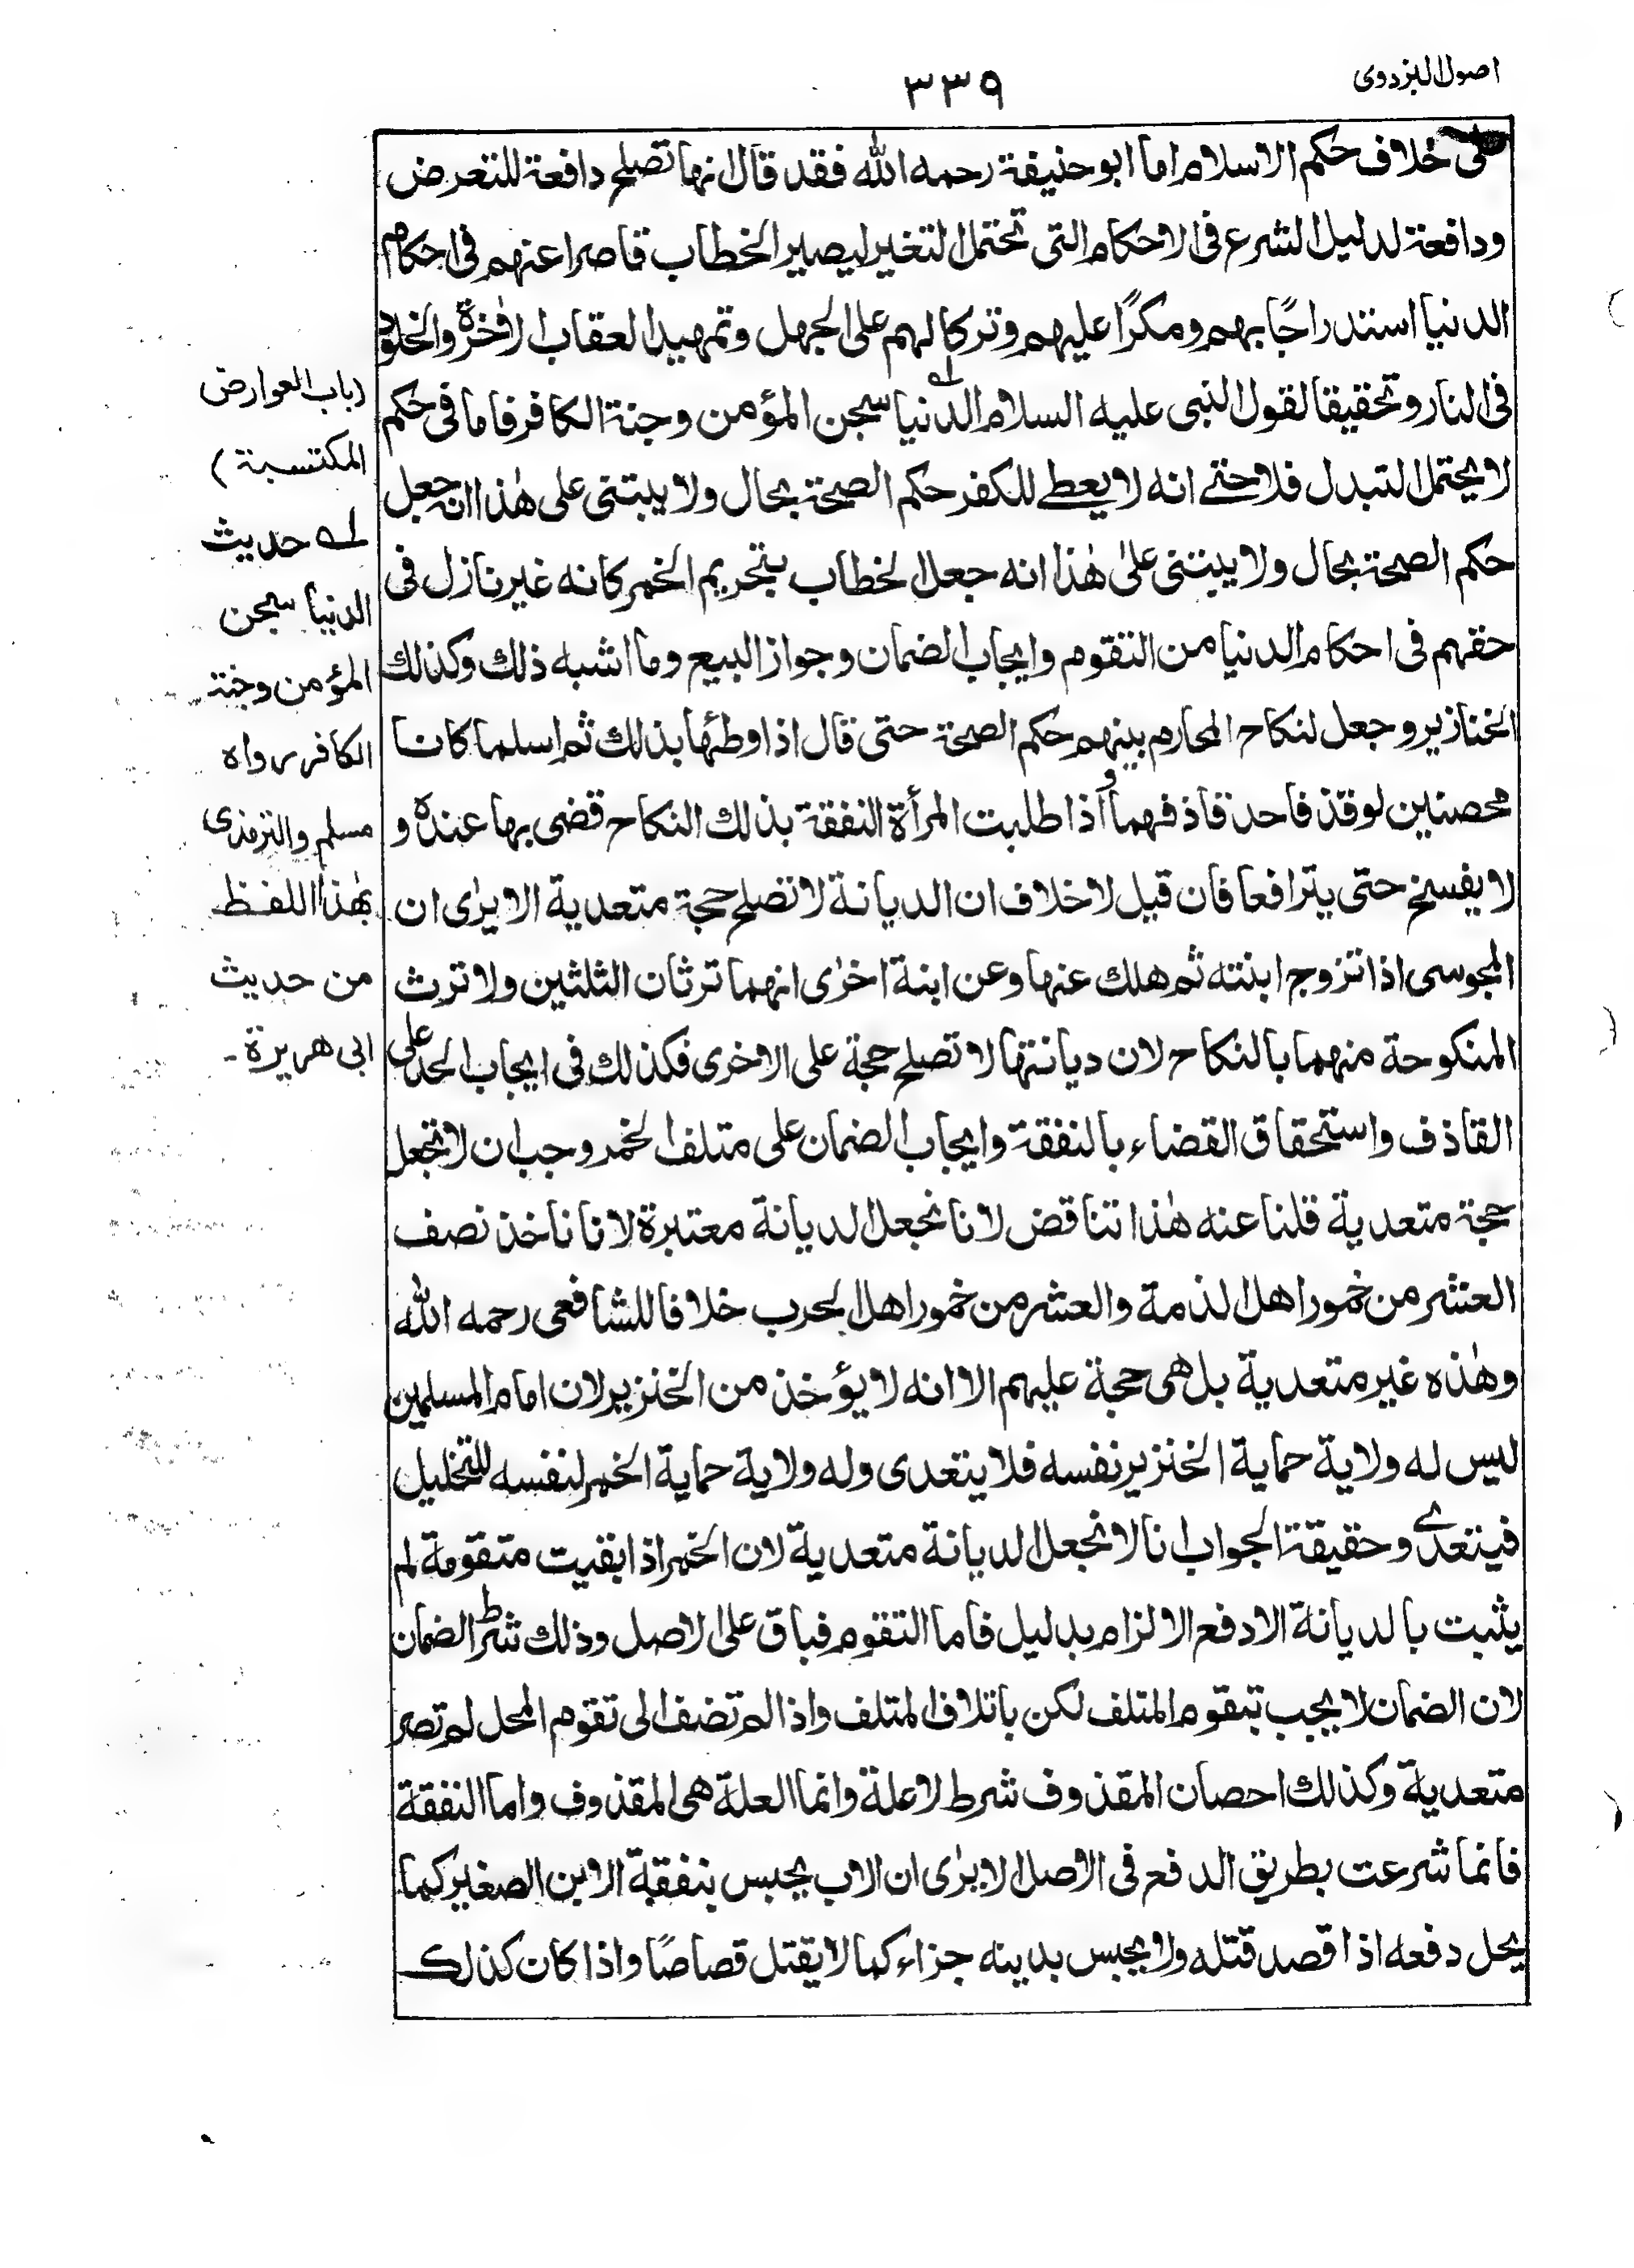 اصول البزدوی
۳۳۹
علی خلاف حكم الاسلام اما ابو حنيفة رحمه الله فقد قال انها تصلح دافعة للتعرض
ودافعة لدليل الشرع فى الاحكام التى تحتمل التغير ليصير الخطاب قاصرا عنهم فى احكام
الدنيا استدراجًا بهم ومكرًا عليهم وتركا لهم على الجهل وتمهيدا لعقاب الاخرة والخلود
فى النار وتحقيقا لقول النبى عليه السلام الدنيا سجن المؤمن وجنة الكافر فاما فى حكم
لا يحتمل التبدل فلا حتے انه لا يعطے للكفر حكم الصحة بحال ولا يبتنى على هٰذا انه جعل
حكم الصحة بحال ولا يبتنى علىٰ هٰذا انه جعل الخطاب بتحريم الخمر كانه غير نازل فى
حقهم فى احكام الدنيا من التقوم وايجاب الضمان وجواز البيع وما اشبه ذلك وكذلك
الخنازير وجعل لنكاح المحارم بينهم حكم الصحة حتى قال اذا وطئها بذلك ثم اسلما كانا
محصنين لو قذفا حد قاذفهما واذا طلبت المرأة النفقة بذلك النكاح قضى بها عنده و
لا يفسخ حتى يترافعا فان قيل لا خلاف ان الديانة لا تصلح حجة متعدية الا يرٰى ان
المجوسى اذا تزوج ابنته ثم هلك عنها وعن ابنة اخرٰى انهما ترثان الثلثين ولا ترث
المنكوحة منهما بالنكاح لان ديانتها لا تصلح حجة على الاخرى فكذلك فى ايجاب الحد على
القاذف واستحقاق القضاء بالنفقة وايجاب الضمان على متلف الخمر وجب ان لا تجعل
حجة متعدية قلنا عنه هٰذا تناقض لانا نجعل الديانة معتبرة لانا ناخذ نصف
العشر من خمور اهل الذمة والعشر من خمور اهل الحرب خلافا للشافعى رحمه الله
وهٰذه غير متعدية بل هى حجة عليهم الا انه لا يؤخذ من الخنزير لان امام المسلمين
ليس له ولاية حماية الخنزير نفسه فلا يتعدى وله ولاية حماية الخمر لنفسه للتخليل
فيتعدے وحقيقة الجواب انا لا نجعل الديانة متعدية لان الخمر اذا بقيت متقومة لم
يثبت بالديانة الا دفع الالزام بدليل فاما التقوم فباق على الاصل وذلك شرط الضمان
لان الضمان لا يجب بتقوم المتلف لكن باتلاف المتلف واذا لم تضف الى تقوم المحل لم تصر
متعدية وكذلك احصان المقذوف شرط لا علة وانما العلة هى المقذوف واما النفقة
فانما شرعت بطريق الدفع فى الاصل الا يرٰى ان الاب يحبس بنفقة الابن الصغير كما
يحل دفعه اذا قصد قتله ولا يحبس بدينه جزاء كما لا يقتل قصاصًا واذا كان كذلك
(باب العوارض
المكتسبة)
لـه حديث
الدنيا سجن
المؤمن وجنة
الكافر رواه
مسلم والترمذى
بهٰذا اللفظ
من حديث
ابى هريرة -